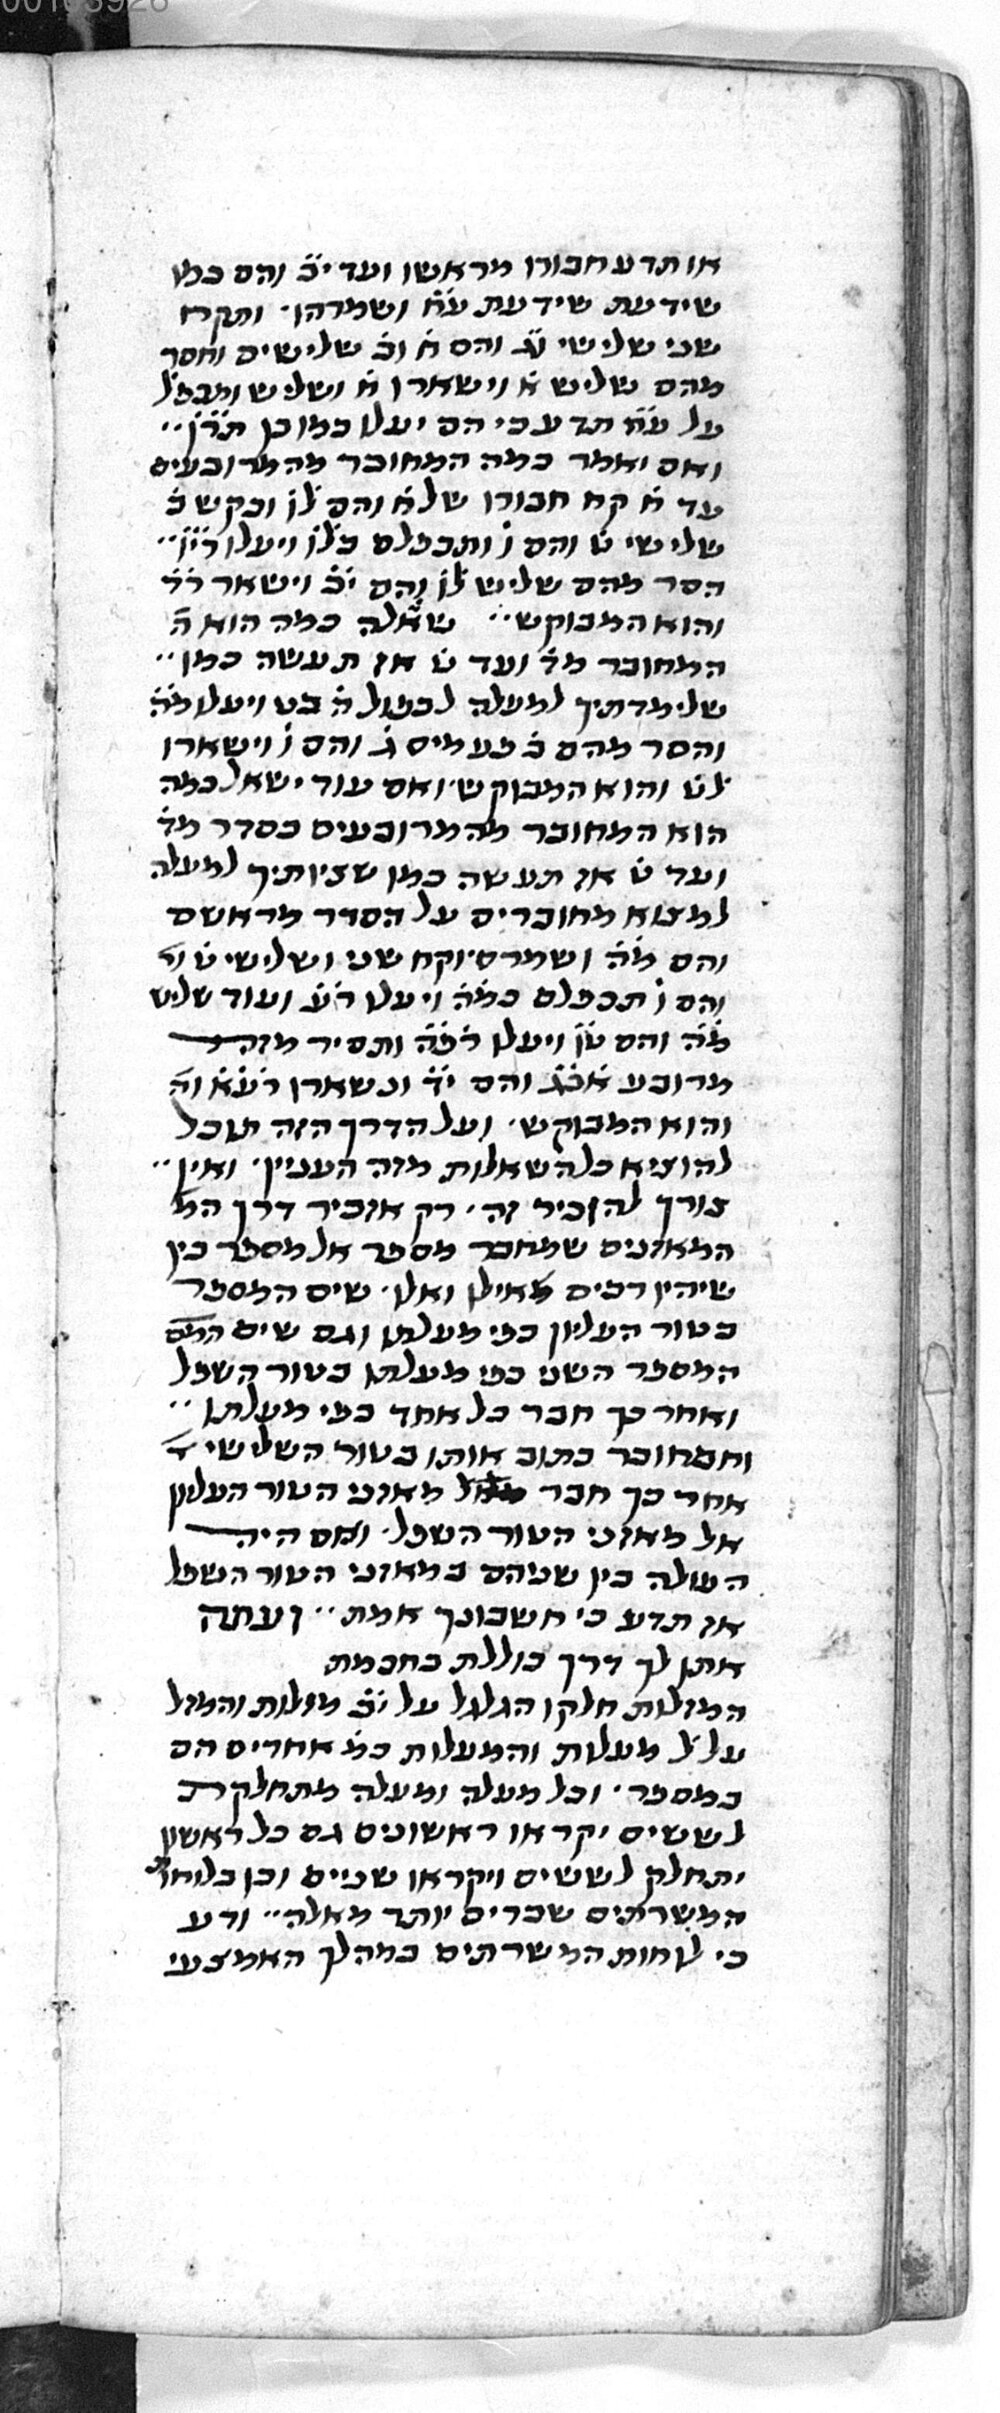 או תדע חבורו מראשו ועד י״ב והם כמו
שידעת שידעת ע״ח ושמרהו ותקח
שני שלישי י״ב והם ח וב׳ שלישים וחסר
מהם שליש א וישארו ח ושליש ותכפל
על ע״ח תדע כי הם יעלו כמו כן תר״ן
ואם יאמר כמה המחובר מהמרובעים
עד ח קח חבורו של ח והם ל״ו ובקש ב׳
שלישי ט והם ו ותכפלם בל״ו ויעלו רי״ו
הסר מהם שליש ל״ו והם י״ב וישאר ר״ד
והוא המבוקש שאלה כמה הוא ה
המחובר מד׳ ועד ט אז תעשה כמו
שלימדתיך למעלה לכפול ה בט ויעלו מ״ה
והסר מהם ב׳ פעמים ג׳ והם ו וישארו
ל״ט והוא המבוקש ואם עוד ישאל כמה
הוא המחובר מהמרובעים כסדר מד׳
ועד ט אז תעשה כמו שצויתיך למעלה
למצוא מחוברים על הסדר מראשם
והם מ״ה ושמרם וקח שני ושלישי ט
והם ו תכפלם במ״ה ויעלו ר״ע ועוד שליש
מ״ה והם ט״ו ויעלו רפ״ה ותסיר מזה
מרובע אב״ג והם י״ד ונשארו רע״א
והוא המבוקש ועל הדרך הזה תוכל
להוציא כל השאלות מזה העניין ואין
צורך להזכיר זה רק אזכיר דרך המ
המאזנים שמחבר מספר אל מספר בין
שיהיו רבים מאילו ואלו שים המספר
בטור העליון כפי מעלתו וגם שים המס
המספר השני כפי מעלתו בטור השפל
ואחר כך חבר כל אחד כפי מעלתו
והמחובר כתוב אותו בטור השלישי
אחר כך חבר מאזני הטור העליון
אל מאזני הטור השפל ואם היה
העולה בין שניהם במאזני הטור השפל
אז תדע כי חשבונך אמת ועתה
אתן לך דרך כוללת בחכמת
המזלות חלקו הגלגל על י״ב מזלות והמזל
על ל׳ מעלות והמעלות כמ׳ אחדים הם
במספר וכל מעלה ומעלה מתחלקת
לששים יקראו ראשונים גם כל ראשון
יתחלק לששים ויקראו שניים וכן בלוחו׳
המשרתים שברים יותר מאלה ודע
כי לוחות המשרתים במהלך האמצעי